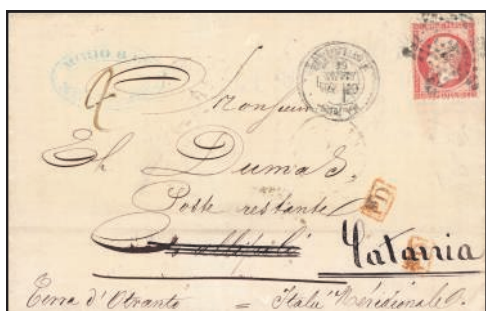 Monsieur
Eh Dumas,
Poste restante
Gallipoli Catania
PD
PD
Terra d'Otranto = Italie Méridionale.